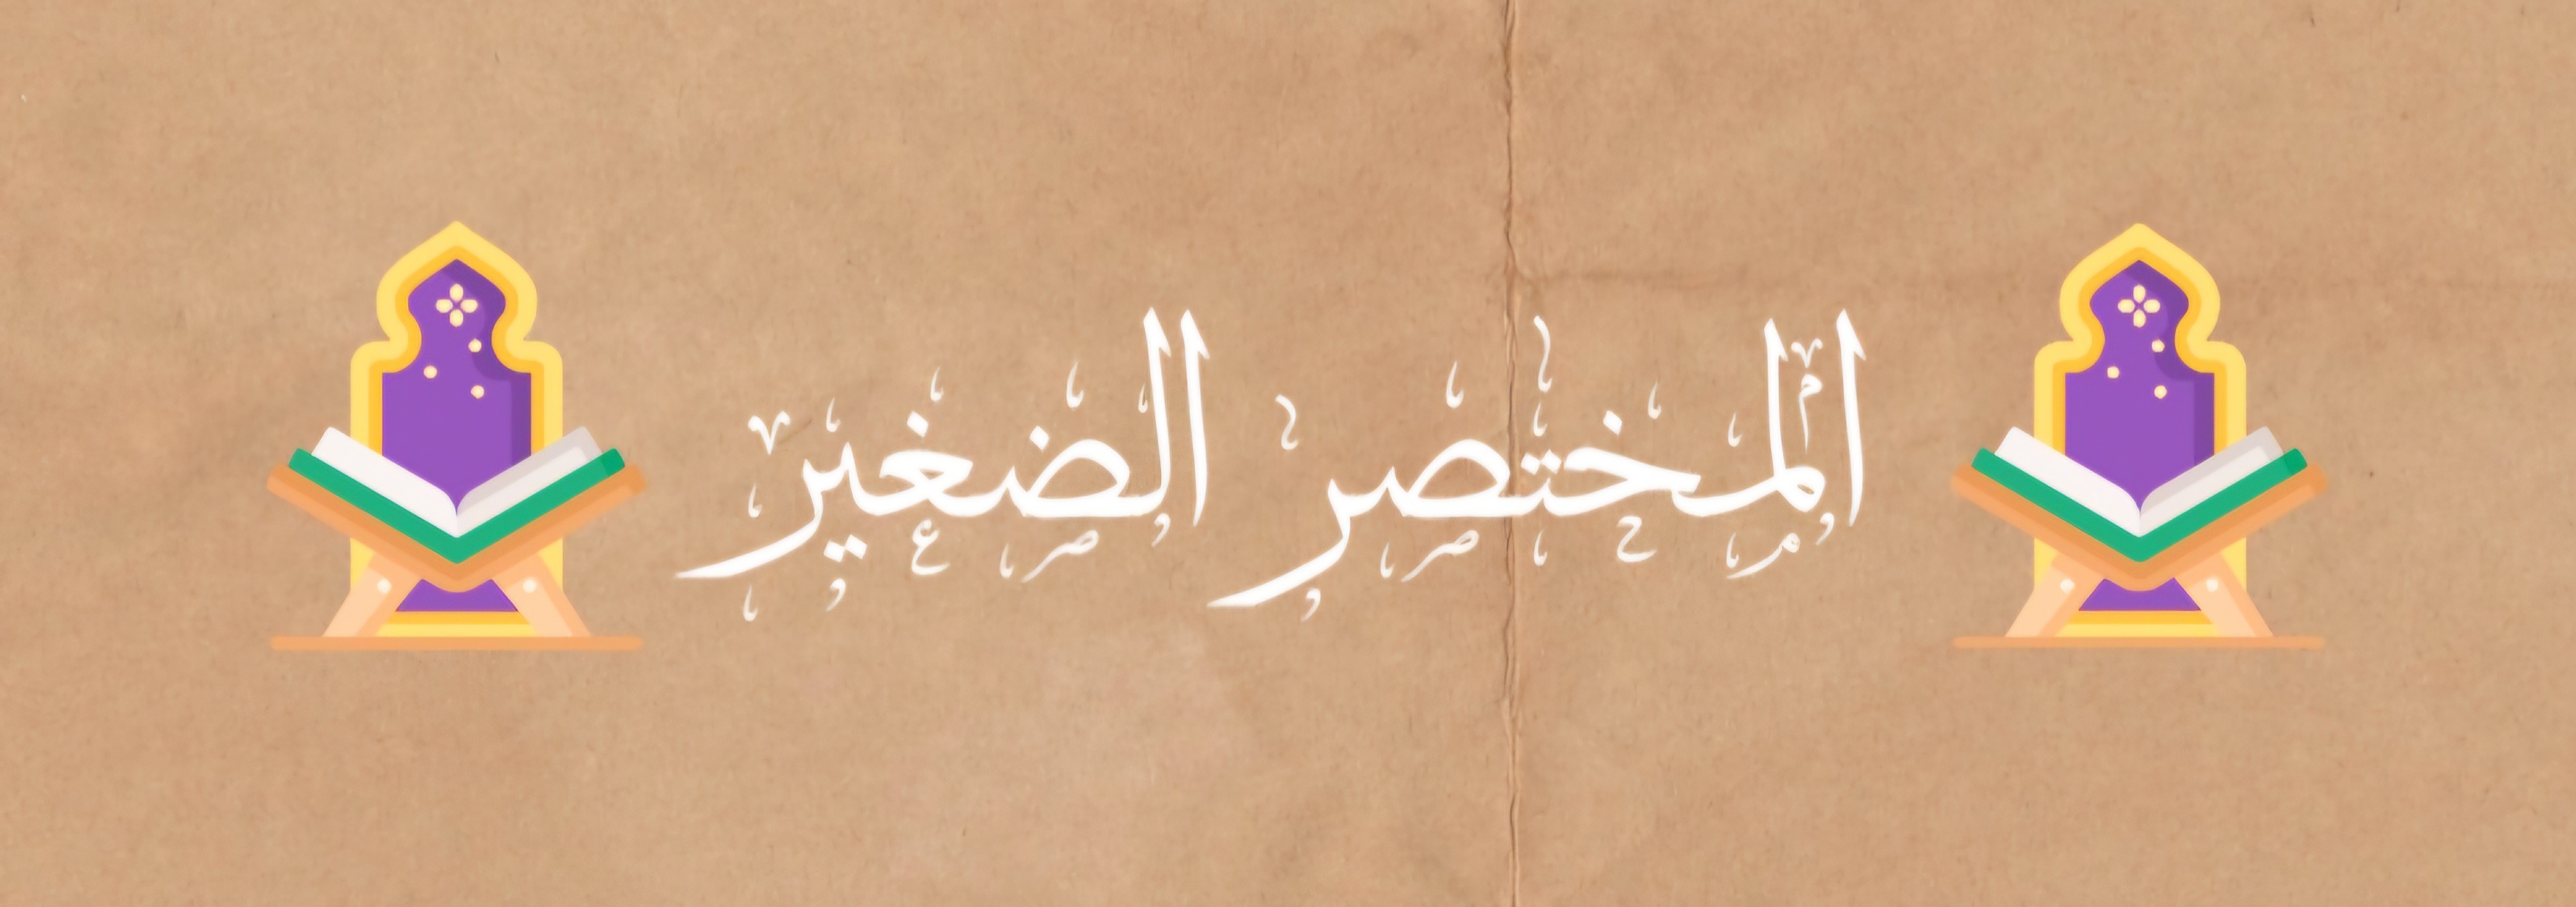 المختصر الضغير